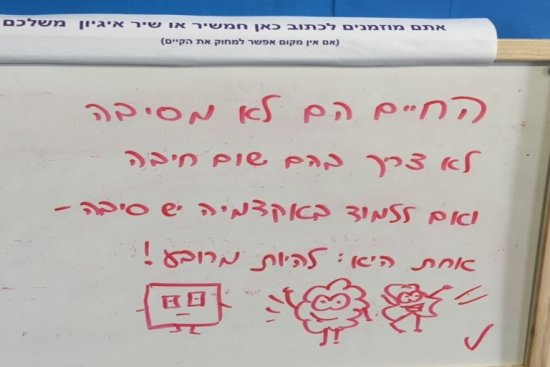 אתם מוזמנים לכתוב כאן חמשיר או שיר איגיון משלכם
(אם אין מקום אפשר למחוק את הקיים)
החיים הם לא מסיבה
לא צריך בהם שום חיבה
ואם ללמוד באקדמיה יש סיבה -
אחת היא: להיות מרובע!